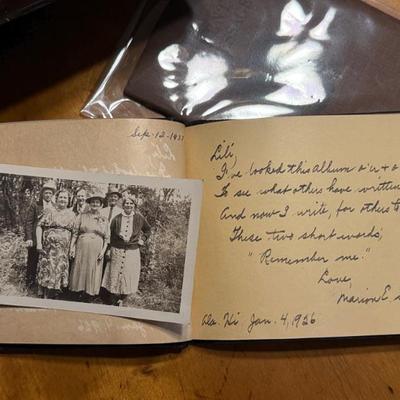 Sep-12-1937
Lili,
I've looked this album o'er + o
To see what others have written
And now I write, for others to
These two short words,
"Remember me."
Love,
Marion E.
Jan. 4, 1926